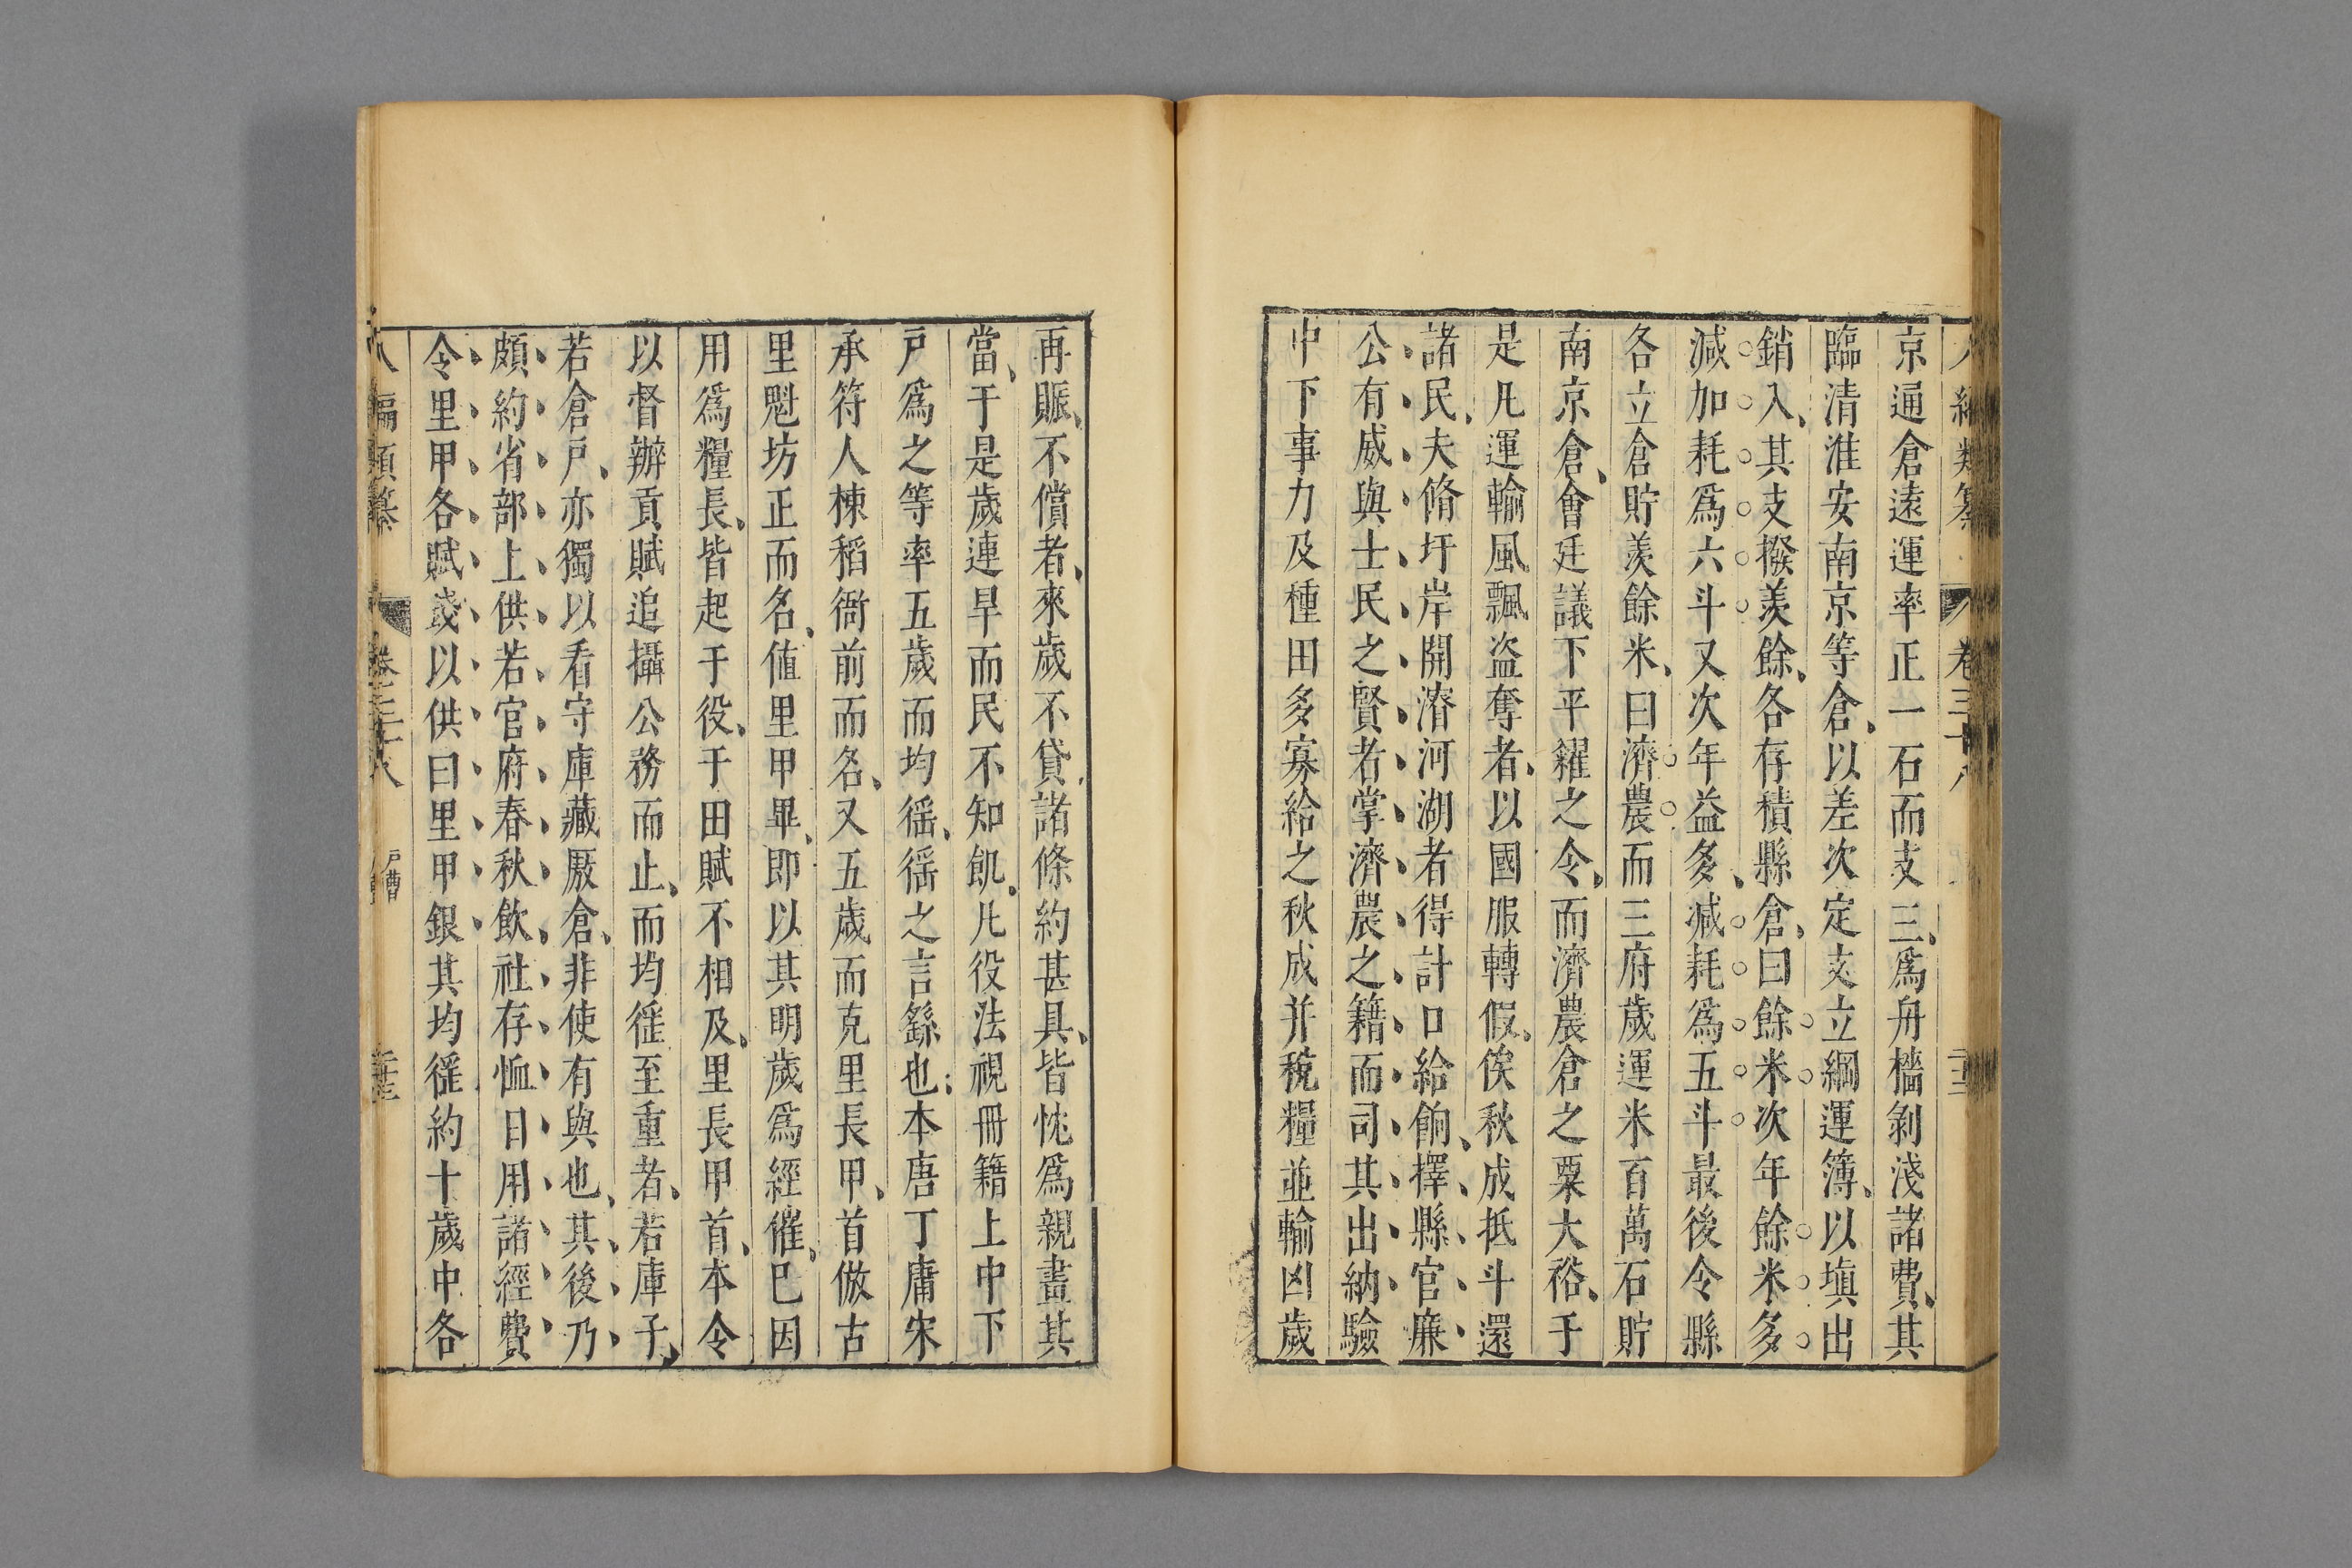 八編類纂 卷三十八
京通倉遠運率正一石而支三爲舟檣剝淺諸費其
臨清淮安南京等倉以差次定支立綱運簿以塡出
銷入其支撥羨餘各存積縣倉曰餘米次年餘米多
減加耗爲六斗又次年益多減耗爲五斗最後令縣
各立倉貯羨餘米曰濟農而三府歲運米百萬石貯
南京倉會廷議下平糴之令而濟農倉之粟大裕于
是凡運輸風飄盜奪者以國服轉假俟秋成抵斗還
諸民夫脩圩岸開濬河湖者得計口給餉擇縣官廉
公有威與士民之賢者掌濟農之籍而司其出納驗
中下事力及種田多寡給之秋成并稅糧並輸凶歲
再賑不償者來歲不貸諸條約甚具皆忱爲親畫其
當于是歲連旱而民不知飢凡役法視冊籍上中下
戶爲之等率五歲而均徭徭之言繇也本唐丁庸宋
承符人棟稻衙前而名又五歲而克里長甲首倣古
里魁坊正而名値里甲畢即以其明歲爲經催巳因
用爲糧長皆起于役于田賦不相及里長甲首本令
以督辦貢賦追攝公務而止而均徭至重者若庫子
若倉戶亦獨以看守庫藏厫倉非使有與也其後乃
頗約省部上供若官府春秋飲社存恤日用諸經費
令里甲各賦錢以供曰里甲銀其均徭約十歲中各
八編類纂 卷三十八 戶曹